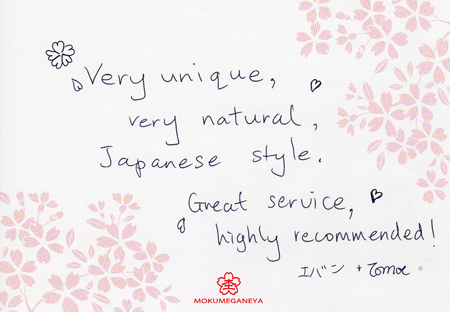 Very unique,
very natural,
Japanese style.
Great service,
highly recommended!
エバン + Tomoe
MOKUMEGANEYA